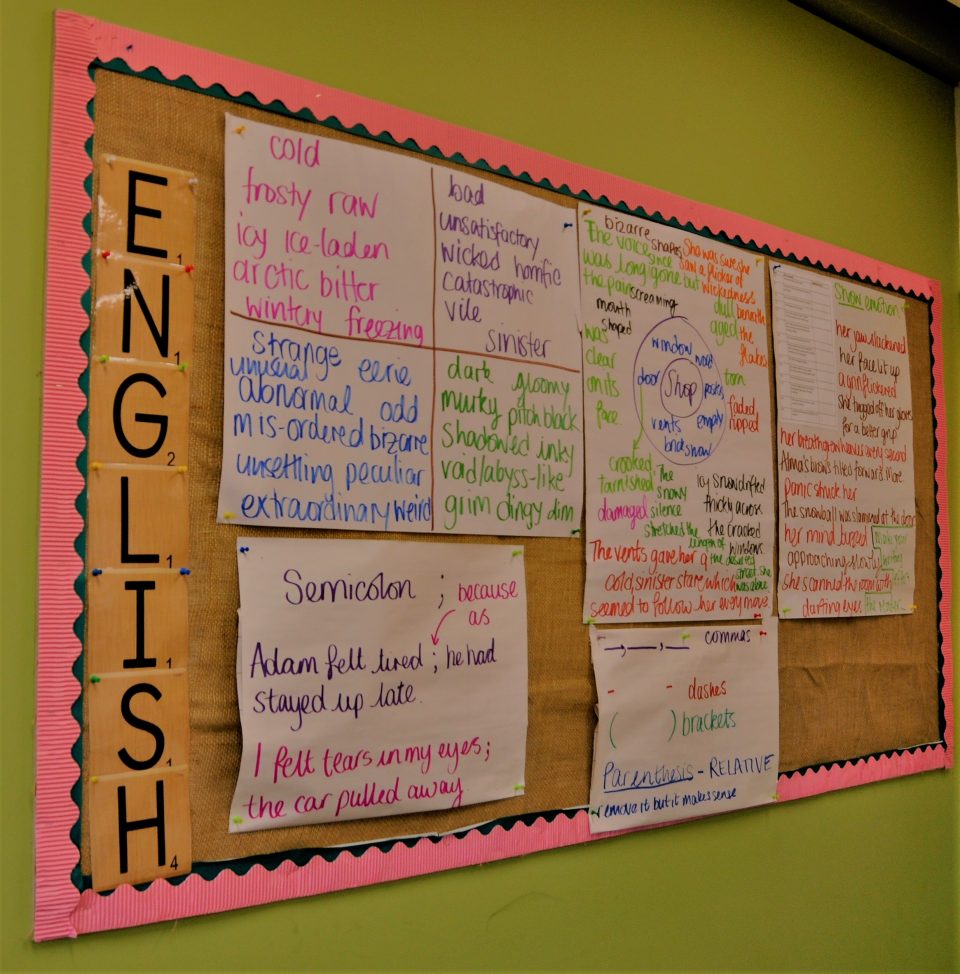 E1
N1
G2
L1
I1
S1
H4
cold
frosty raw
icy ice-laden
arctic bitter
wintry freezing
bad
unsatisfactory
wicked horrific
catastrophic
vile
sinister
strange
unusual eerie
abnormal odd
mis-ordered bizarre
unsettling peculiar
extraordinary weird
dark gloomy
murky pitch black
shadowed inky
void/abyss-like
grim dingy dim
Semicolon ; because
as
Adam felt tired ; he had
stayed up late.
I felt tears in my eyes;
the car pulled away
bizarre
shapes
The voice since
was long gone but
the pain
screaming
mouth
shaped
She was sure she
saw a flicker of
wickedness
dull
aged
beneath
the
flakes
was
clear
on its
face
window
door
Shop
posters
vents empty
brick
torn
faded
ripped
crooked
tarnished
damaged
The
snowy
silence
stretched the
length of
the deserted
street. She
was alone
icy snow drifted
thickly across
the cracked
windows
The vents gave her a
cold, sinister stare which
seemed to follow her every move
commas
- - dashes
( ) brackets
Parenthesis - RELATIVE
remove it but it makes sense
Show emotion
her jaw slackened
her face lit up
a grin flickered
she tugged off her gloves
for a better grip
her breathing
every second
Alma's brows tilted forward more
panic struck her
The snowball was slammed at the door
her mind buzzed
approaching slowly
she scanned the room with
darting eyes